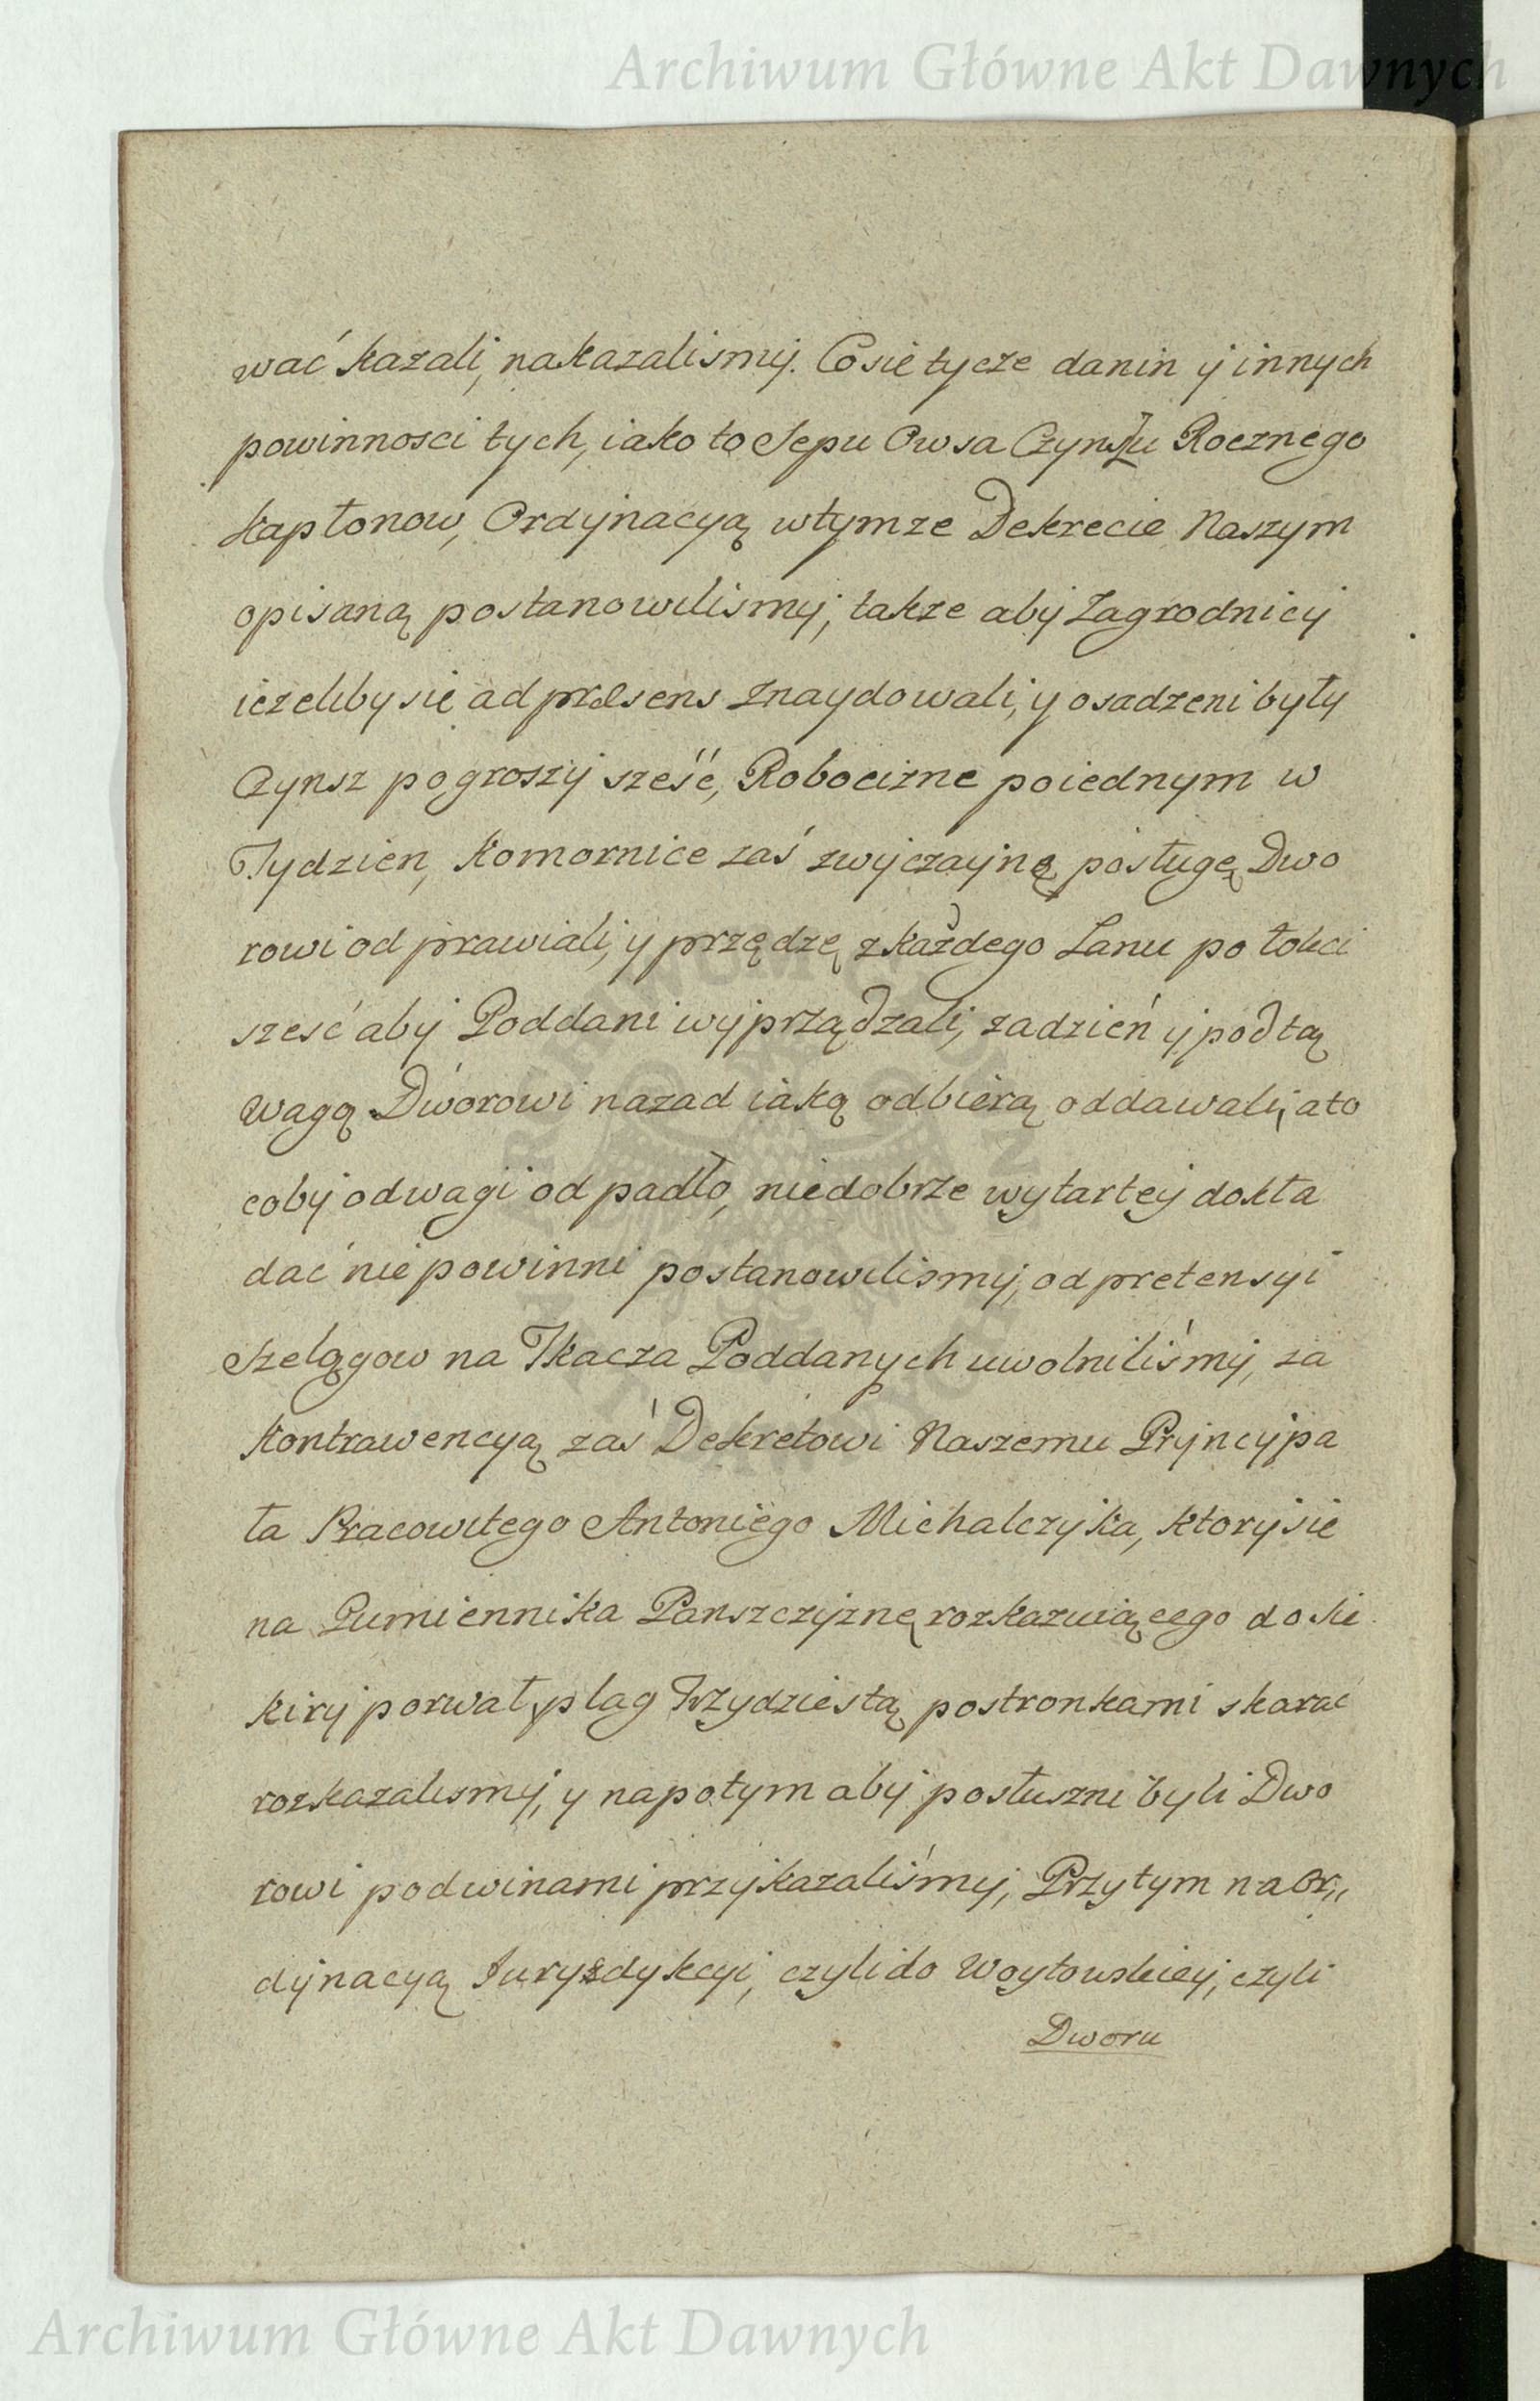 Archiwum Główne Akt Dawnych
wać kazali, nakazalismy. Co sie tycze danin y innych
powinnosci tych, iako to Sepu Owsa Czynszu Rocznego
Kapłonow, Ordynacyą wtymze Dekrecie Naszym
opisaną postanowilismy, takze aby Zagrodnicy
iezeliby sie ad præsens znaydowali, y osadzeni były
Czynsz po groszy sześć, Robocizne poiednym w
Tydzien, Komornice zaś zwyczayną posługę Dwo
rowi od prawiali, y przędzę z każdego Łanu po łokci
sześć aby Poddani wyprządzali, zadzień y podtą
wagą Dworowi nazad iaką odbierą oddawali, ato
coby odwagi od padło, niedobrze wytartey dokła
dać nie powinni postanowilismy, od pretensyi
Szelągow na Tkacza Poddanych uwolniliśmy, za
Kontrawencyą zaś Dekretowi Naszemu Pryncypa
ła Pracowitego Antoniego Michalczyka, ktory sie
na Gumiennika Panszczyznę rozkazuiącego do Sie
kiry porwał, plag Trzydziestą postronkami skarać
rozkazalismy, y napotym aby posłuszni byli Dwo
rowi podwinami przykazaliśmy, Przytym na Or„
dynacyą Jurysdykcyi, czyli do Woytowskiey, czyli
Dworu
Archiwum Główne Akt Dawnych